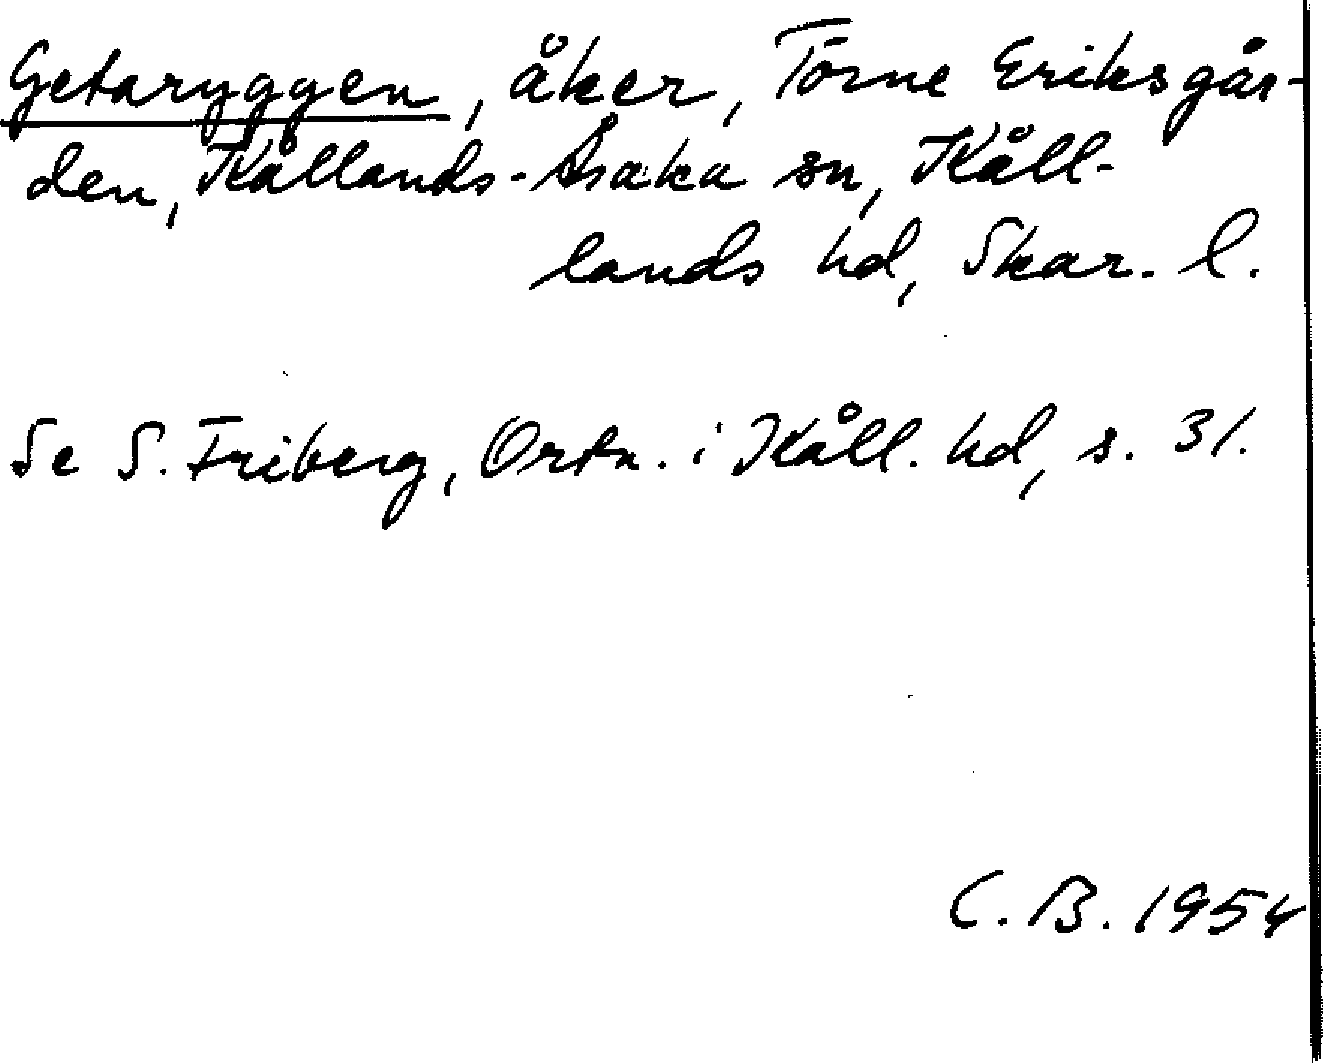 Getaryggen, åker, Törne Eriksgår-
den, Kållands-Åsaka sn, Kåll-
lands hd, Skar. l.
Se S. Friberg, Ortn. i Kåll. hd, s. 31.
C. B. 1954